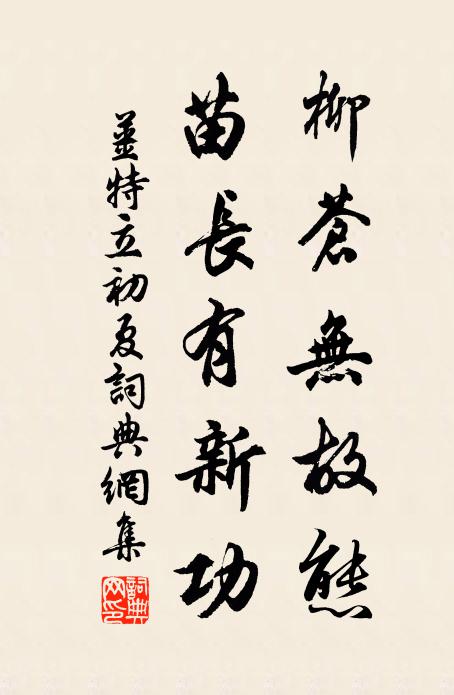 柳蒼無故態
苗長有新功
姜特立初夏詞典網集
詞典網印